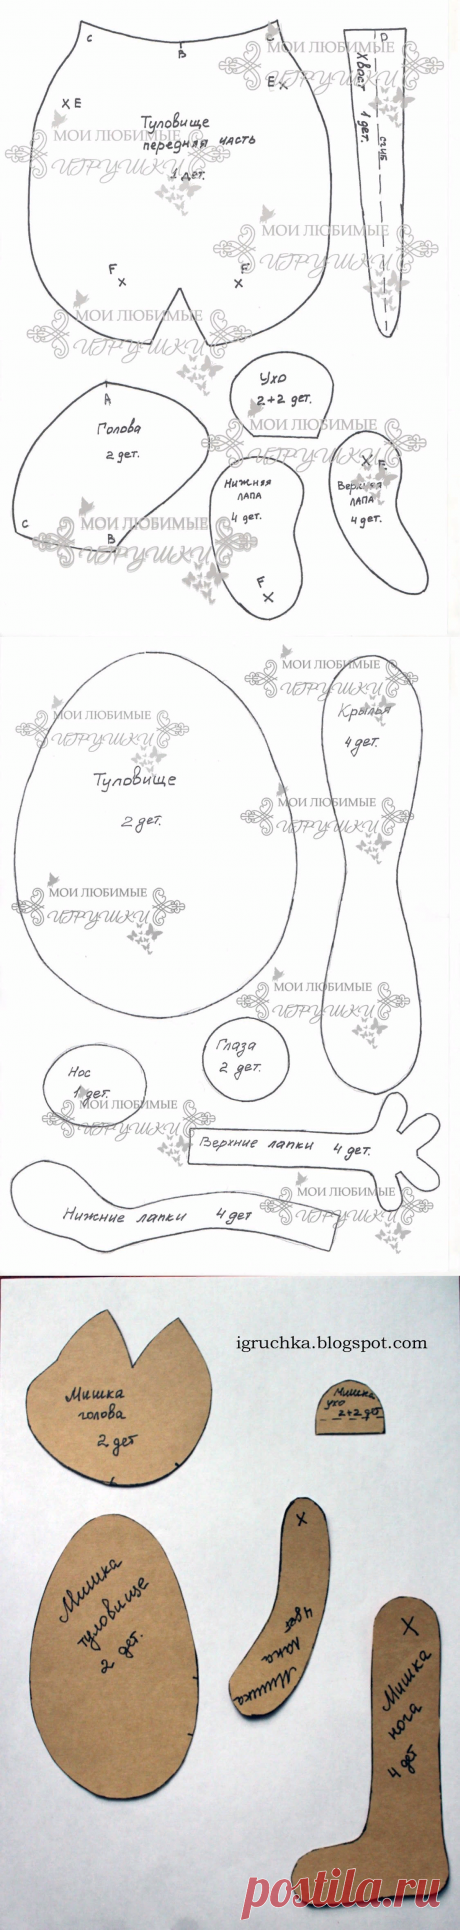 C
B
C
МОИ ЛЮБИМЫЕ
ИГРУШКИ
D
Хвост 1 дет.
сгиб
E
E
МОИ ЛЮБИМЫЕ
ИГРУШКИ
Туловище
передняя часть
1 дет.
МОИ ЛЮБИМЫЕ
ИГРУШКИ
F
F
МОИ ЛЮБИМЫЕ
ИГРУШКИ
A
Голова
2 дет.
C
B
МОИ ЛЮБИМЫЕ
ИГРУШКИ
Ухо
2+2 дет.
МОИ ЛЮБИМЫЕ
ИГРУШКИ
Нижняя
лапа
4 дет.
F
E
Верхняя
лапа
4 дет.
МОИ ЛЮБИМЫЕ
ИГРУШКИ
МОИ ЛЮБИМЫЕ
ИГРУШКИ
Крылья
4 дет.
МОИ ЛЮБИМЫЕ
ИГРУШКИ
Туловище
2 дет.
МОИ ЛЮБИМЫЕ
ИГРУШКИ
МОИ ЛЮБИМЫЕ
ИГРУШКИ
МОИ ЛЮБИМЫЕ
ИГРУШКИ
Нос
1 дет.
Глаза
2 дет.
МОИ ЛЮБИМЫЕ
ИГРУШКИ
Верхние лапки 4 дет.
МОИ ЛЮБИМЫЕ
ИГРУШКИ
Нижние лапки 4 дет
igruchka.blogspot.com
Мишка
голова
2 дет
Мишка
ухо
2+2 дет
Мишка
туловище
2 дет.
Мишка
лапа
4 дет
Мишка
нога
4 дет
postila.ru